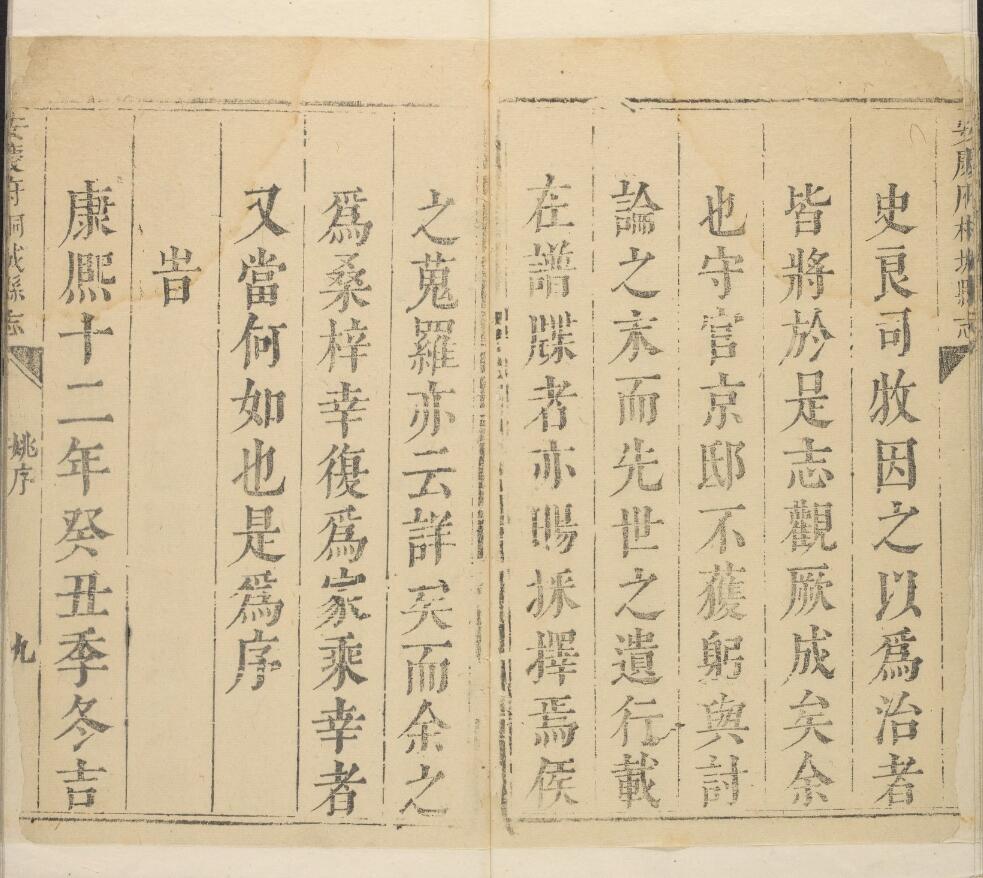 安慶府桐城縣志
史良司牧因之以爲治者
皆將於是志觀厥成矣余
也守官京邸不獲躬與討
論之末而先世之遺行載
在譜牒者亦賜採擇焉侯
之蒐羅亦云詳矣而余之
爲桑梓幸復爲家乘幸者
又當何如也是爲序
旹
康熈十二年癸丑季冬吉
安慶府桐城縣志
姚序
九